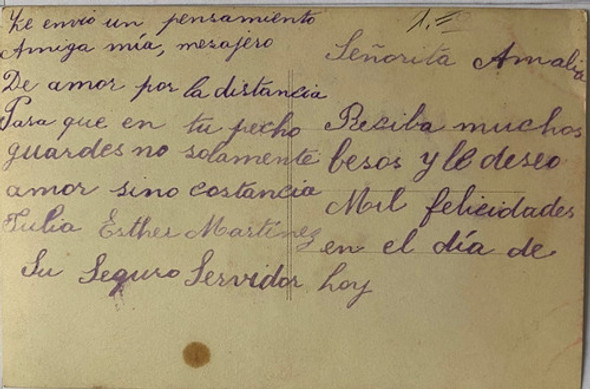 Le envio un pensamiento
Amiga mía, mesajero
De amor por la distancia
Para que en tu pecho
guardes no solamente
amor sino costancia
Julia Esther Martínez
Su Seguro Servidor
1.=
Señorita Amalia
Reciba muchos
besos y le deseo
Mil felicidades
en el día de
hoy